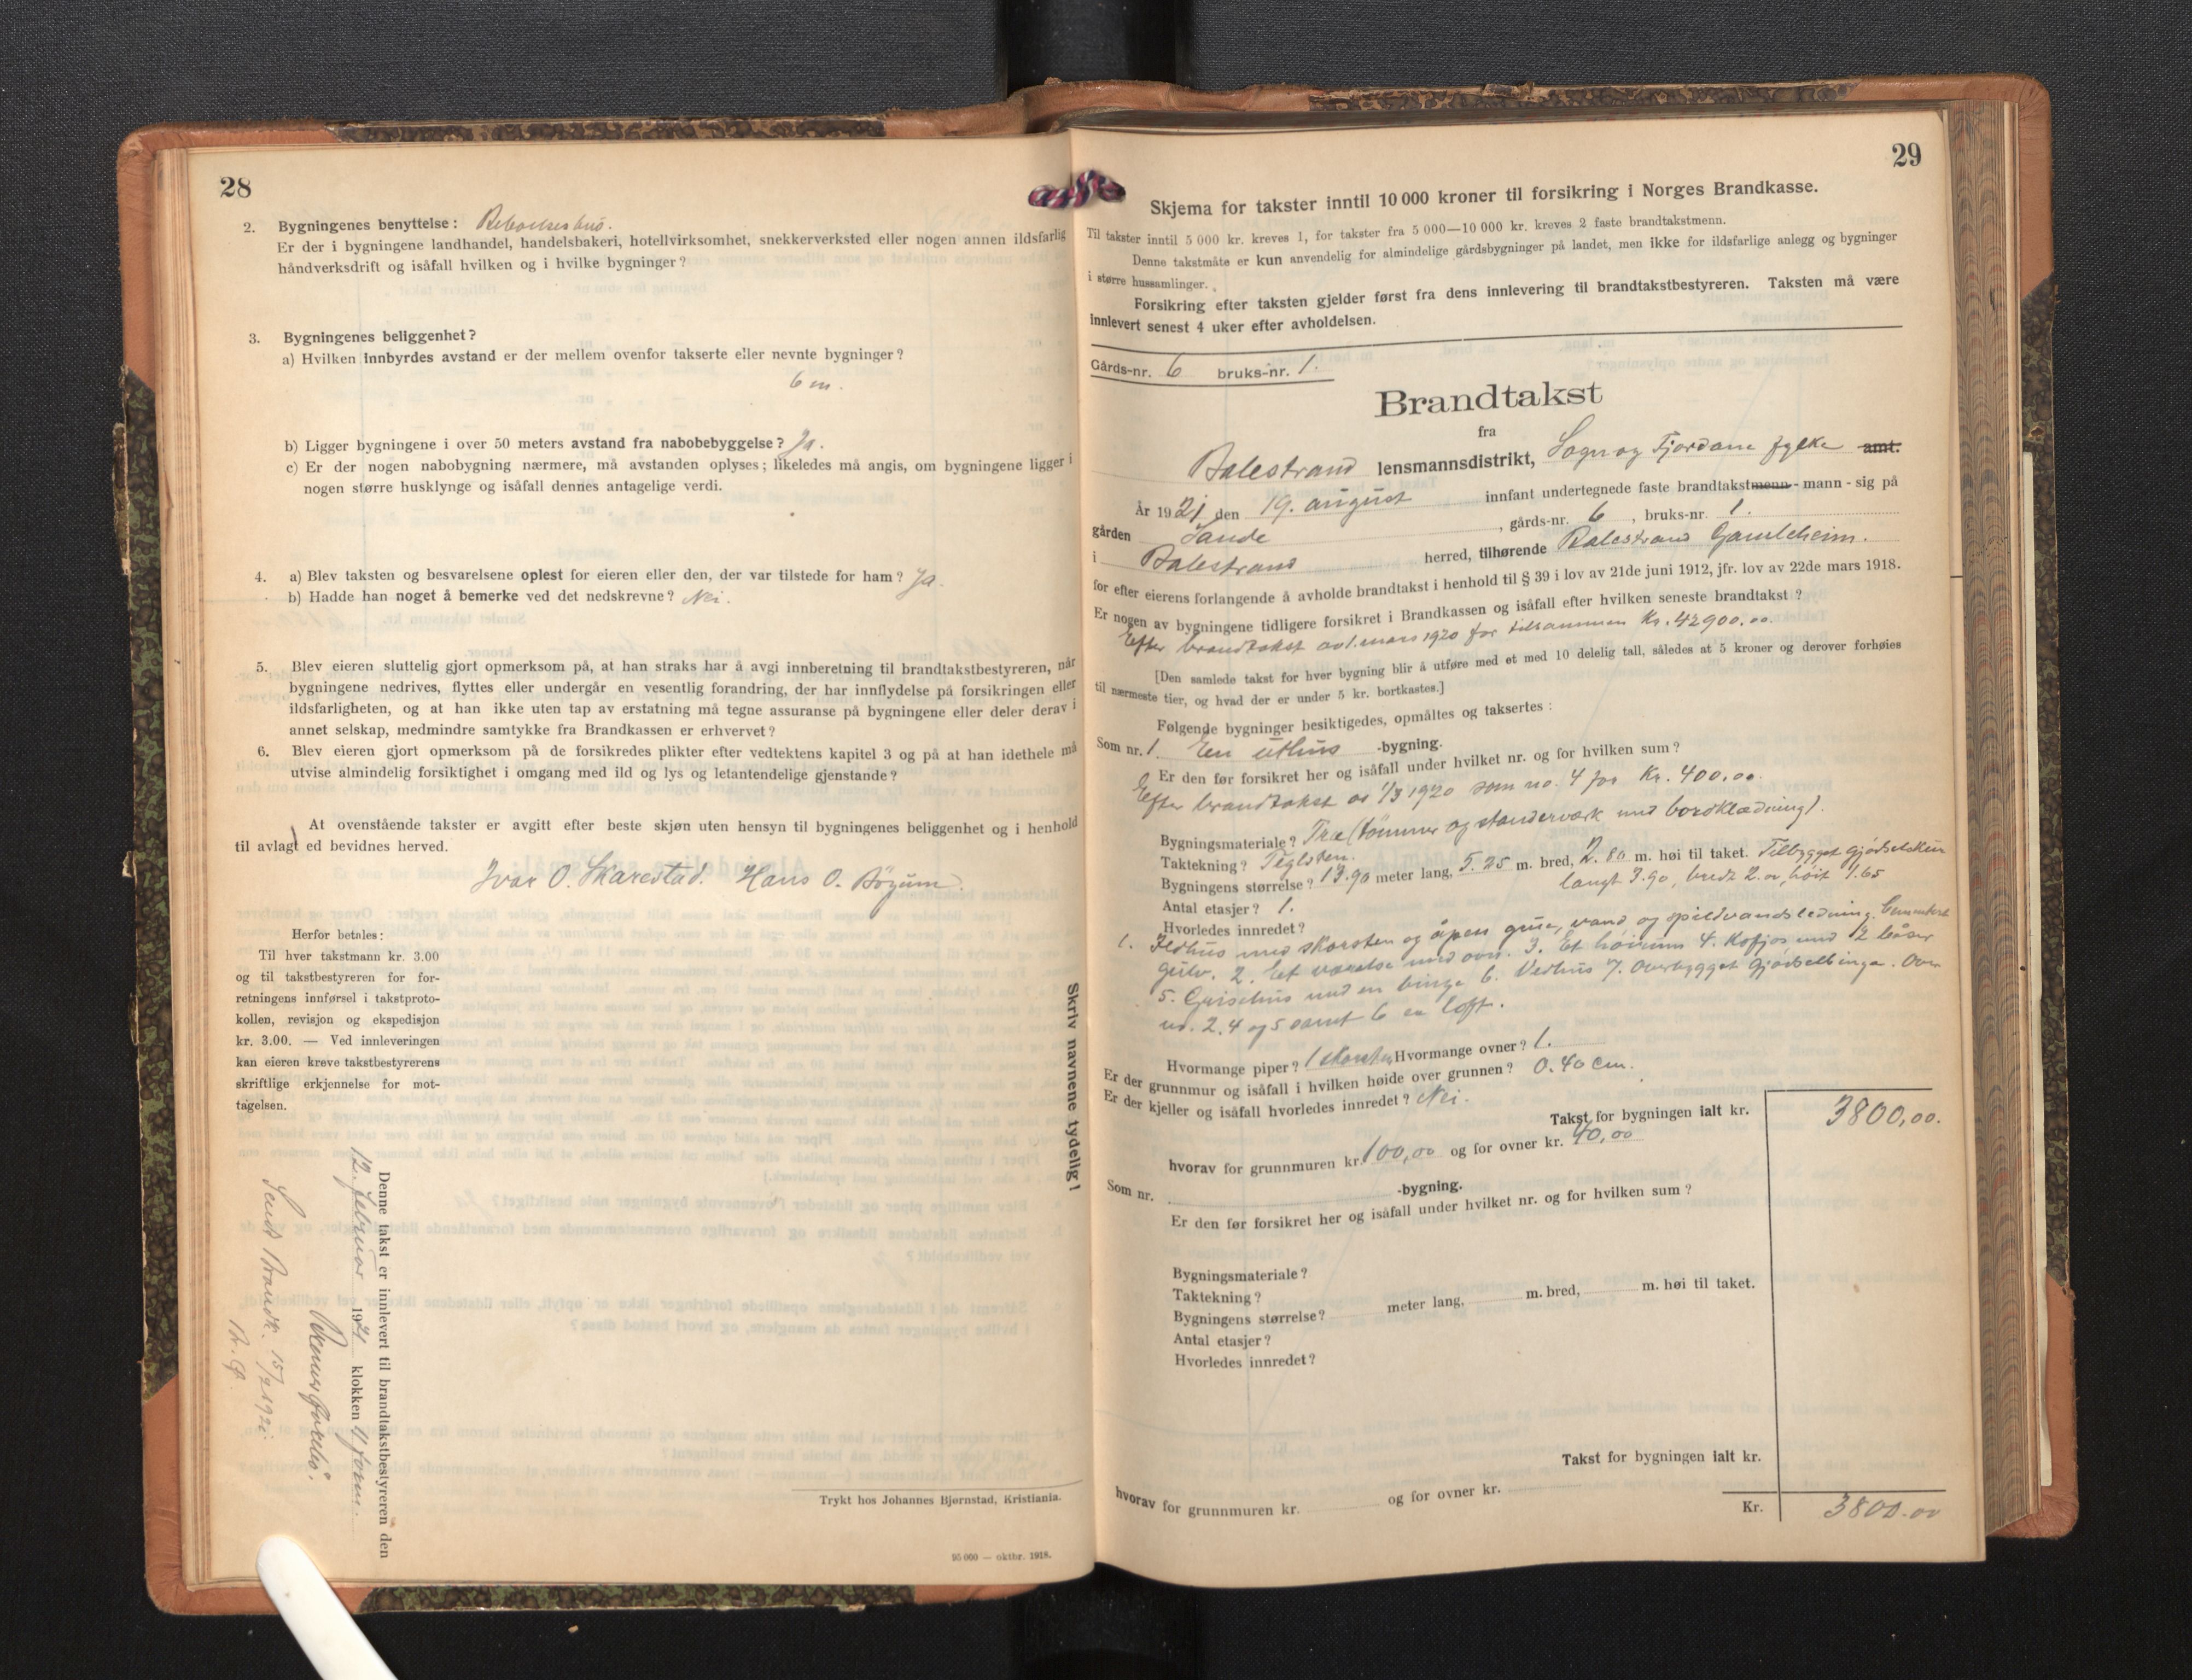 28
2. Bygningenes benyttelse: Beboelseshus.
Er der i bygningene landhandel, handelsbakeri, hotellvirksomhet, snekkerverksted eller nogen annen ildsfarlig
håndverksdrift og isåfall hvilken og i hvilke bygninger?
3. Bygningenes beliggenhet?
a) Hvilken innbyrdes avstand er der mellem ovenfor takserte eller nevnte bygninger?
6 m.
b) Ligger bygningene i over 50 meters avstand fra nabobebyggelse? Ja.
c) Er der nogen nabobygning nærmere, må avstanden oplyses; likeledes må angis, om bygningene ligger i
nogen større husklynge og isåfall dennes antagelige verdi.
4. a) Blev taksten og besvarelsene oplest for eieren eller den, der var tilstede for ham? Ja.
b) Hadde han noget å bemerke ved det nedskrevne? Nei.
5. Blev eieren sluttelig gjort opmerksom på, at han straks har å avgi innberetning til brandtakstbestyreren, når
bygningene nedrives, flyttes eller undergår en vesentlig forandring, der har innflydelse på forsikringen eller
ildsfarligheten, og at han ikke uten tap av erstatning må tegne assuranse på bygningene eller deler derav i
annet selskap, medmindre samtykke fra Brandkassen er erhvervet?
6. Blev eieren gjort opmerksom på de forsikredes plikter efter vedtektens kapitel 3 og på at han idethele må
utvise almindelig forsiktighet i omgang med ild og lys og letantendelige gjenstande?
At ovenstående takster er avgitt efter beste skjøn uten hensyn til bygningenes beliggenhet og i henhold
til avlagt ed bevidnes herved.
Ivar O. Skarestad. Hans O. Bøyum.
Herfor betales:
Til hver takstmann kr. 3.00
og til takstbestyreren for for-
retningens innførsel i takstproto-
kollen, revisjon og ekspedisjon
kr. 3.00. — Ved innleveringen
kan eieren kreve takstbestyrerens
skriftlige erkjennelse for mot-
tagelsen.
Skriv navnene tydelig!
Denne takst er innlevert til brandtakstbestyreren den
12. februar 1921 klokken 11 form.
Sendt Brandk. 15/2 1921.
Trykt hos Johannes Bjørnstad, Kristiania.
95 000 — oktbr. 1918.
29
Skjema for takster inntil 10 000 kroner til forsikring i Norges Brandkasse.
Til takster inntil 5 000 kr. kreves 1, for takster fra 5 000—10 000 kr. kreves 2 faste brandtakstmenn.
Denne takstmåte er kun anvendelig for almindelige gårdsbygninger på landet, men ikke for ildsfarlige anlegg og bygninger
i større hussamlinger.
Forsikring efter taksten gjelder først fra dens innlevering til brandtakstbestyreren. Taksten må være
innlevert senest 4 uker efter avholdelsen.
Gårds-nr. 6 bruks-nr. 1.
Brandtakst
fra
Balestrand lensmannsdistrikt, Sogn og Fjordane fylke amt.
År 1921 den 19. august innfant undertegnede faste brandtakstmenn - mann - sig på
gården Sande, gårds-nr. 6, bruks-nr. 1.
i Balestrand herred, tilhørende Balestrand Gamleheim.
for efter eierens forlangende å avholde brandtakst i henhold til § 39 i lov av 21de juni 1912, jfr. lov av 22de mars 1918.
Er nogen av bygningene tidligere forsikret i Brandkassen og isåfall efter hvilken seneste brandtakst?
Efter brandtakst av 1. mars 1920 for tilsammen Kr. 42900.00.
[Den samlede takst for hver bygning blir å utføre med et med 10 delelig tall, således at 5 kroner og derover forhøies
til nærmeste tier, og hvad der er under 5 kr. bortkastes.]
Følgende bygninger besiktigedes, opmåltes og taksertes:
Som nr. 1 En uthus -bygning.
Er den før forsikret her og isåfall under hvilket nr. og for hvilken sum?
Efter brandtakst av 1/3 1920 som no. 4 for Kr. 400.00.
Bygningsmateriale? Træ (tømmer og standerværk med bordklædning).
Taktekning? Teglsten.
Bygningens størrelse? 13.90 meter lang, 5.25 m. bred, 2.80 m. høi til taket. Tilbygget gjødselskur
langt 3.90, bredt 2.00, høit 1.65
Antal etasjer? 1.
Hvorledes innredet?
1. Ildhus med skorsten og åpen grue, vand og spildvandsledning. Cementert
gulv. 2. Et værelse med ovn. 3. Et høirum 4. Kofjøs med 12 båser
5. Grisehus med en binge 6. Vedhus 7. Overbygget gjødselbinge. Over
no. 2, 4 og 5 samt 6 en loft.
Hvormange piper? 1 skorsten Hvormange ovner? 1.
Er der grunnmur og isåfall i hvilken høide over grunnen? 0.40 cm.
Er der kjeller og isåfall hvorledes innredet? Nei.
Takst for bygningen ialt kr. 3800,00.
hvorav for grunnmuren kr. 100,00 og for ovner kr. 40,00
Som nr. -bygning.
Er den før forsikret her og isåfall under hvilket nr. og for hvilken sum?
Bygningsmateriale?
Taktekning?
Bygningens størrelse? meter lang, m. bred, m. høi til taket.
Antal etasjer?
Hvorledes innredet?
Takst for bygningen ialt kr.
hvorav for grunnmuren kr. og for ovner kr.
Kr. 3800.00